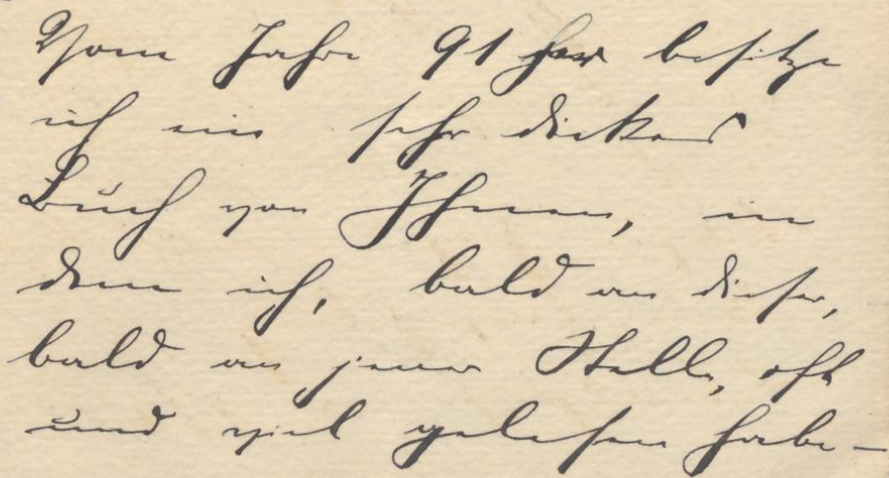 Vom Jahre 91 her besitze
ich ein sehr dickes
Buch von Ihnen, in
dem ich, bald an dieser,
bald an jener Stelle, oft
und viel gelesen habe –